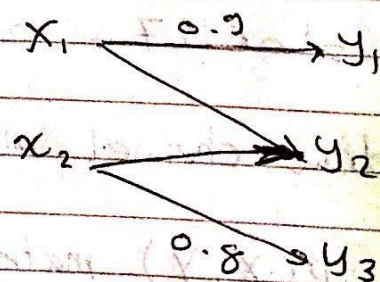 x₁ 0.9 y₁
x₂ y₂
0.8 y₃